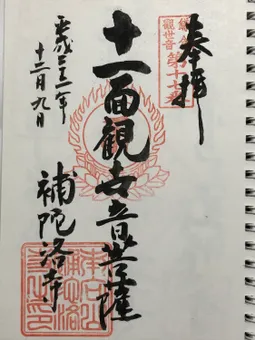 奉拝
鎌倉
観世音
第十七番
十一面観世音菩薩
平成三十一年
十二月九日
補陀洛寺